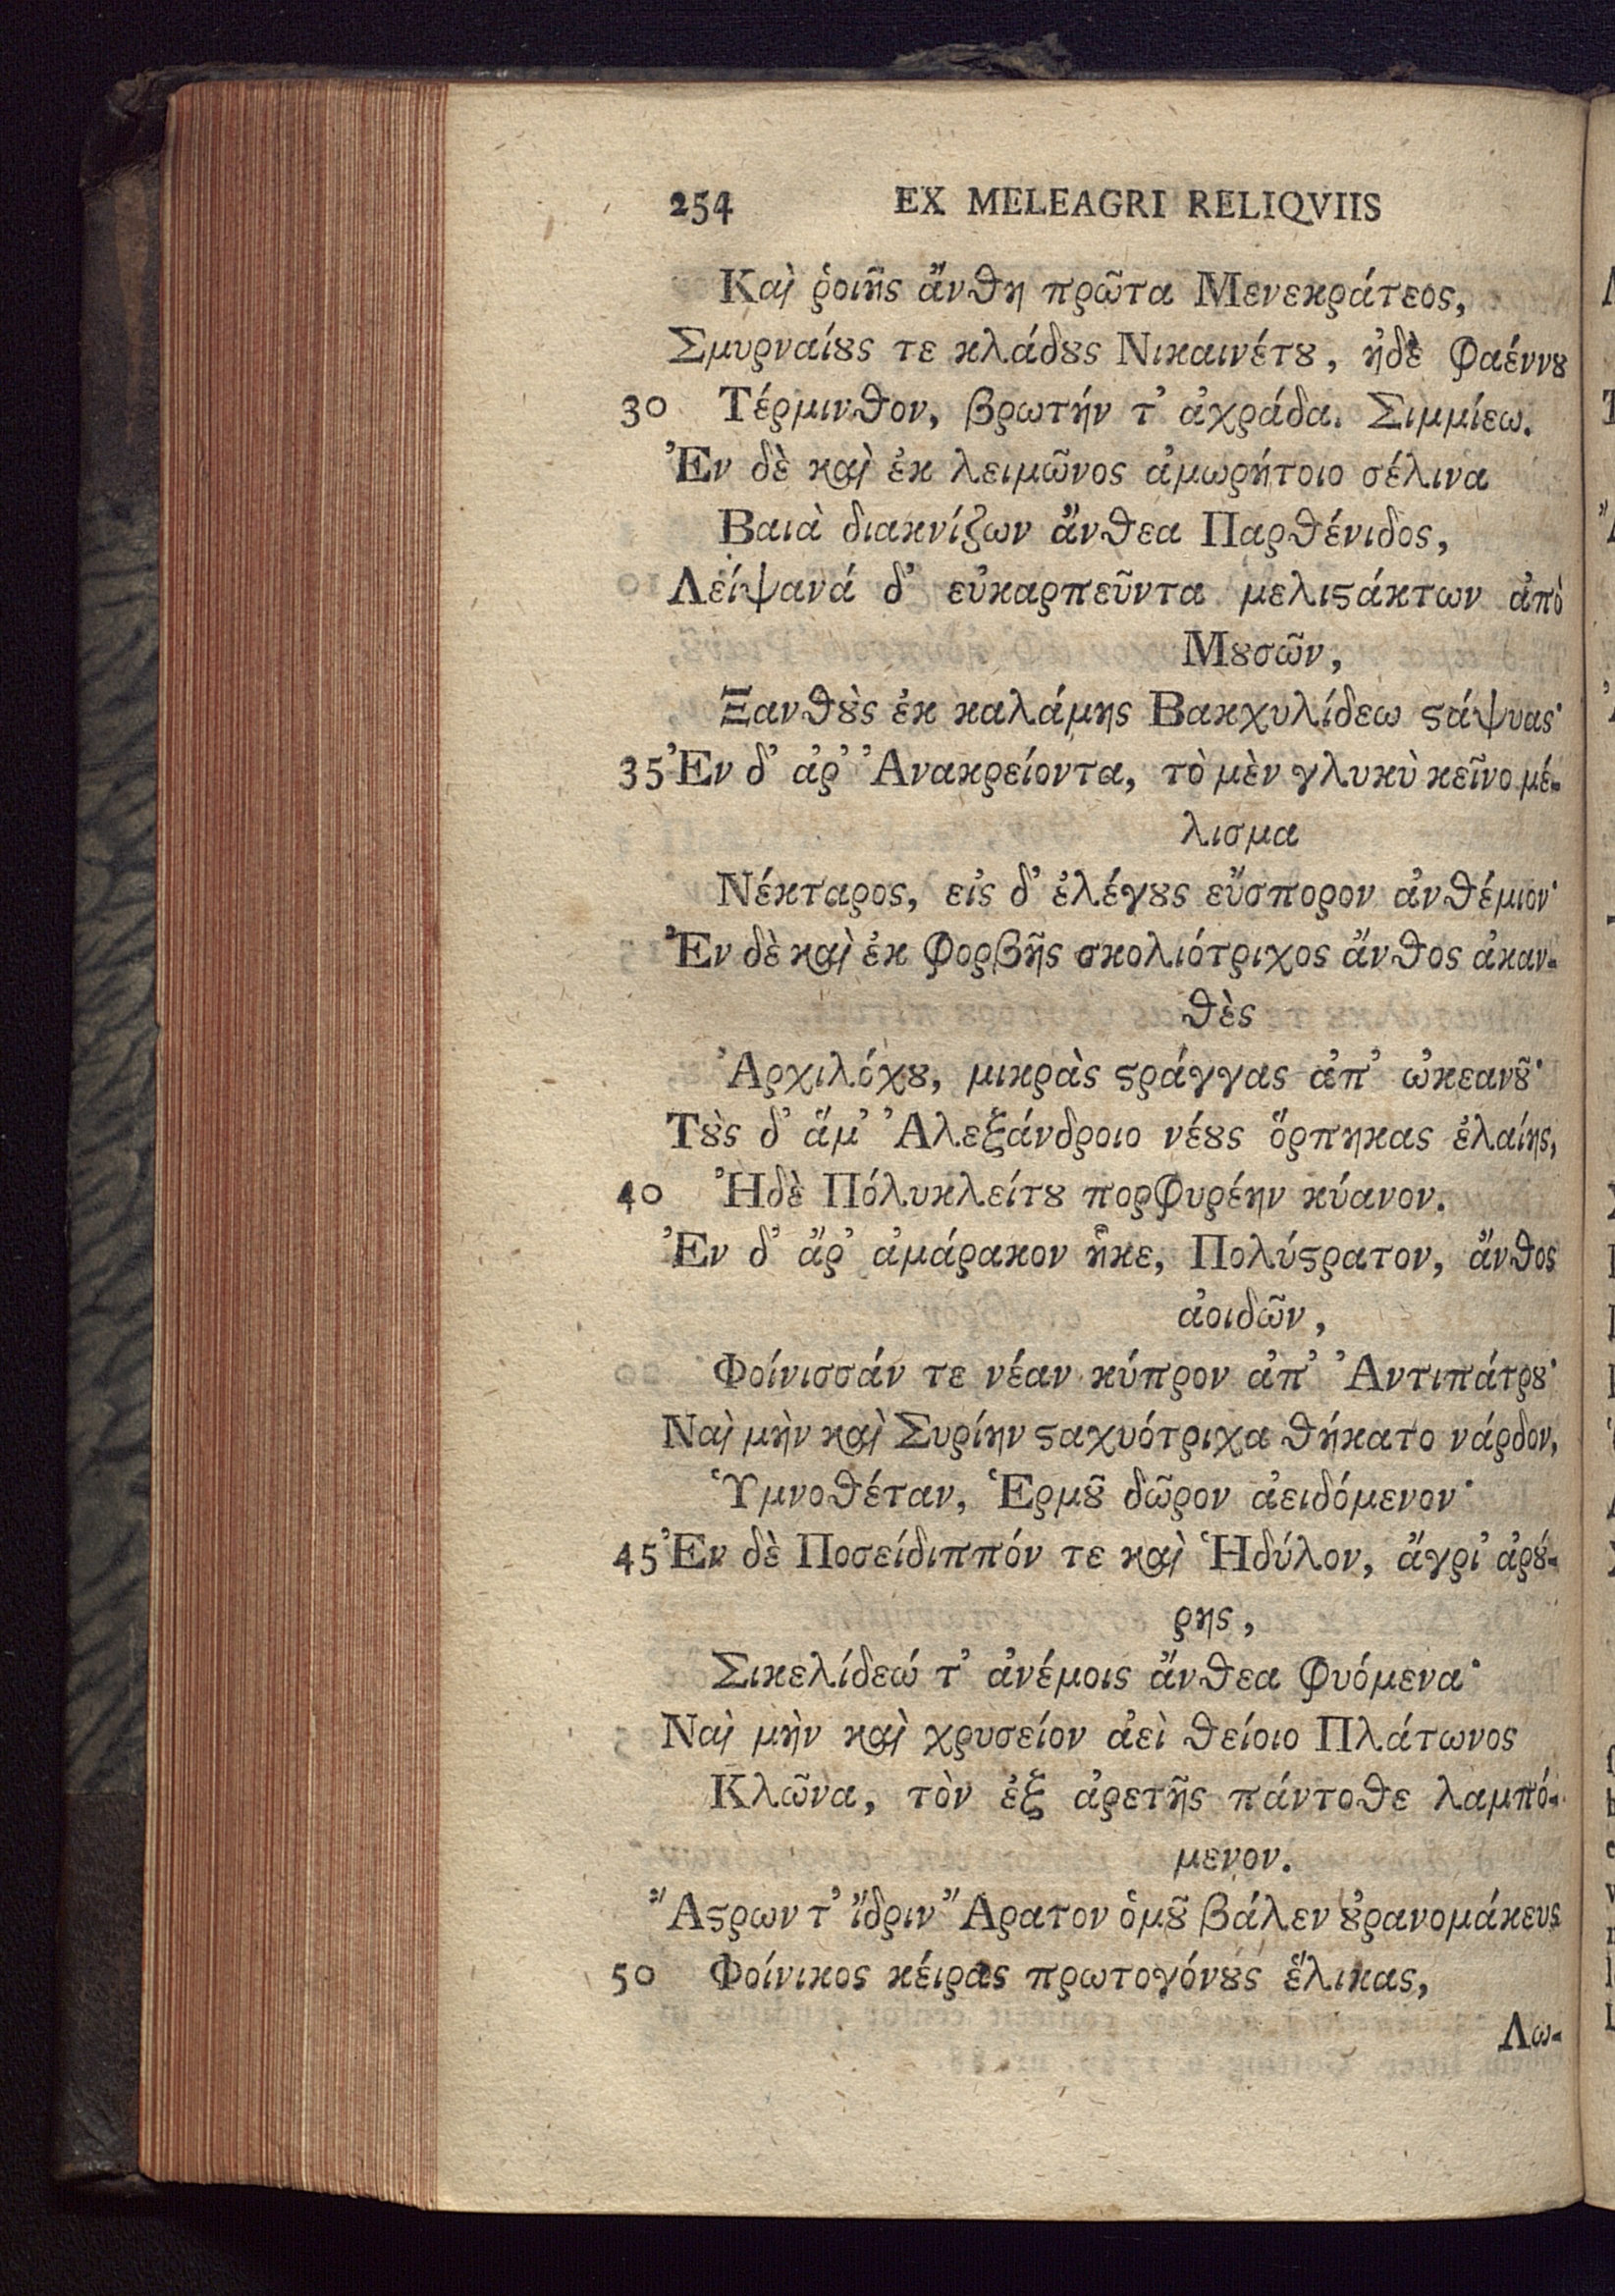 254 EX MELEAGRI RELIQVIIS
Καὶ ῥοιῆς ἄνθη πρῶτα Μενεκράτεος,
Σμυρναίȣς τε κλάδȣς Νικαινέτȣ, ἠδὲ Φαέννȣ
30 Τέρμινθον, βρωτήν τ’ ἀχράδα. Σιμμίεω.
Ἐν δὲ καὶ ἐκ λειμῶνος ἀμωρήτοιο σέλινα
Βαιὰ διακνίζων ἄνθεα Παρθένιδος,
Λείψανά δ’ εὐκαρπεῦντα μελιϛάκτων ἀπὸ
Μȣσῶν,
Ξανθȣ̀ς ἐκ καλάμης Βακχυλίδεω ϛάψυας·
35 Ἐν δ’ ἀρ’ Ἀνακρείοντα, τὸ μὲν γλυκὺ κεῖνο μέ-
λισμα
Νέκταρος, εἰς δ’ ἐλέγȣς εὔσπορον ἀνθέμιον·
Ἐν δὲ καὶ ἐκ φορβῆς σκολιότριχος ἄνθος ἀκαν-
θὲς
Ἀρχιλόχȣ, μικρὰς ϛράγγας ἀπ’ ὠκεανȣ͂·
Τȣ̀ς δ’ ἅμ’ Ἀλεξάνδροιο νέȣς ὅρπηκας ἐλαίης,
40 Ἠδὲ Πόλυκλείτȣ πορφυρέην κύανον.
Ἐν δ’ ἄρ’ ἀμάρακον ἧκε, Πολύϛρατον, ἄνθος
ἀοιδῶν,
Φοίνισσάν τε νέαν κύπρον ἀπ’ Ἀντιπάτρȣ·
Ναὶ μὴν καὶ Συρίην ϛαχυότριχα θήκατο νάρδον,
Ὑμνοθέταν, Ἑρμȣ͂ δῶρον ἀειδόμενον·
45 Ἐν δὲ Ποσείδιππόν τε καὶ Ἡδύλον, ἄγρι’ ἀρȣ́-
ρης,
Σικελίδεώ τ’ ἀνέμοις ἄνθεα φυόμενα·
Ναὶ μὴν καὶ χρυσείον ἀεὶ θείοιο Πλάτωνος
Κλῶνα, τὸν ἐξ ἀρετῆς πάντοθε λαμπό-
μενον.
Ἄϛρων τ’ ἴδριν Ἄρατον ὁμȣ͂ βάλεν ȣ̓ρανομάκευς
50 Φοίνικος κέιρας πρωτογόνȣς ἕλικας,
Λω-